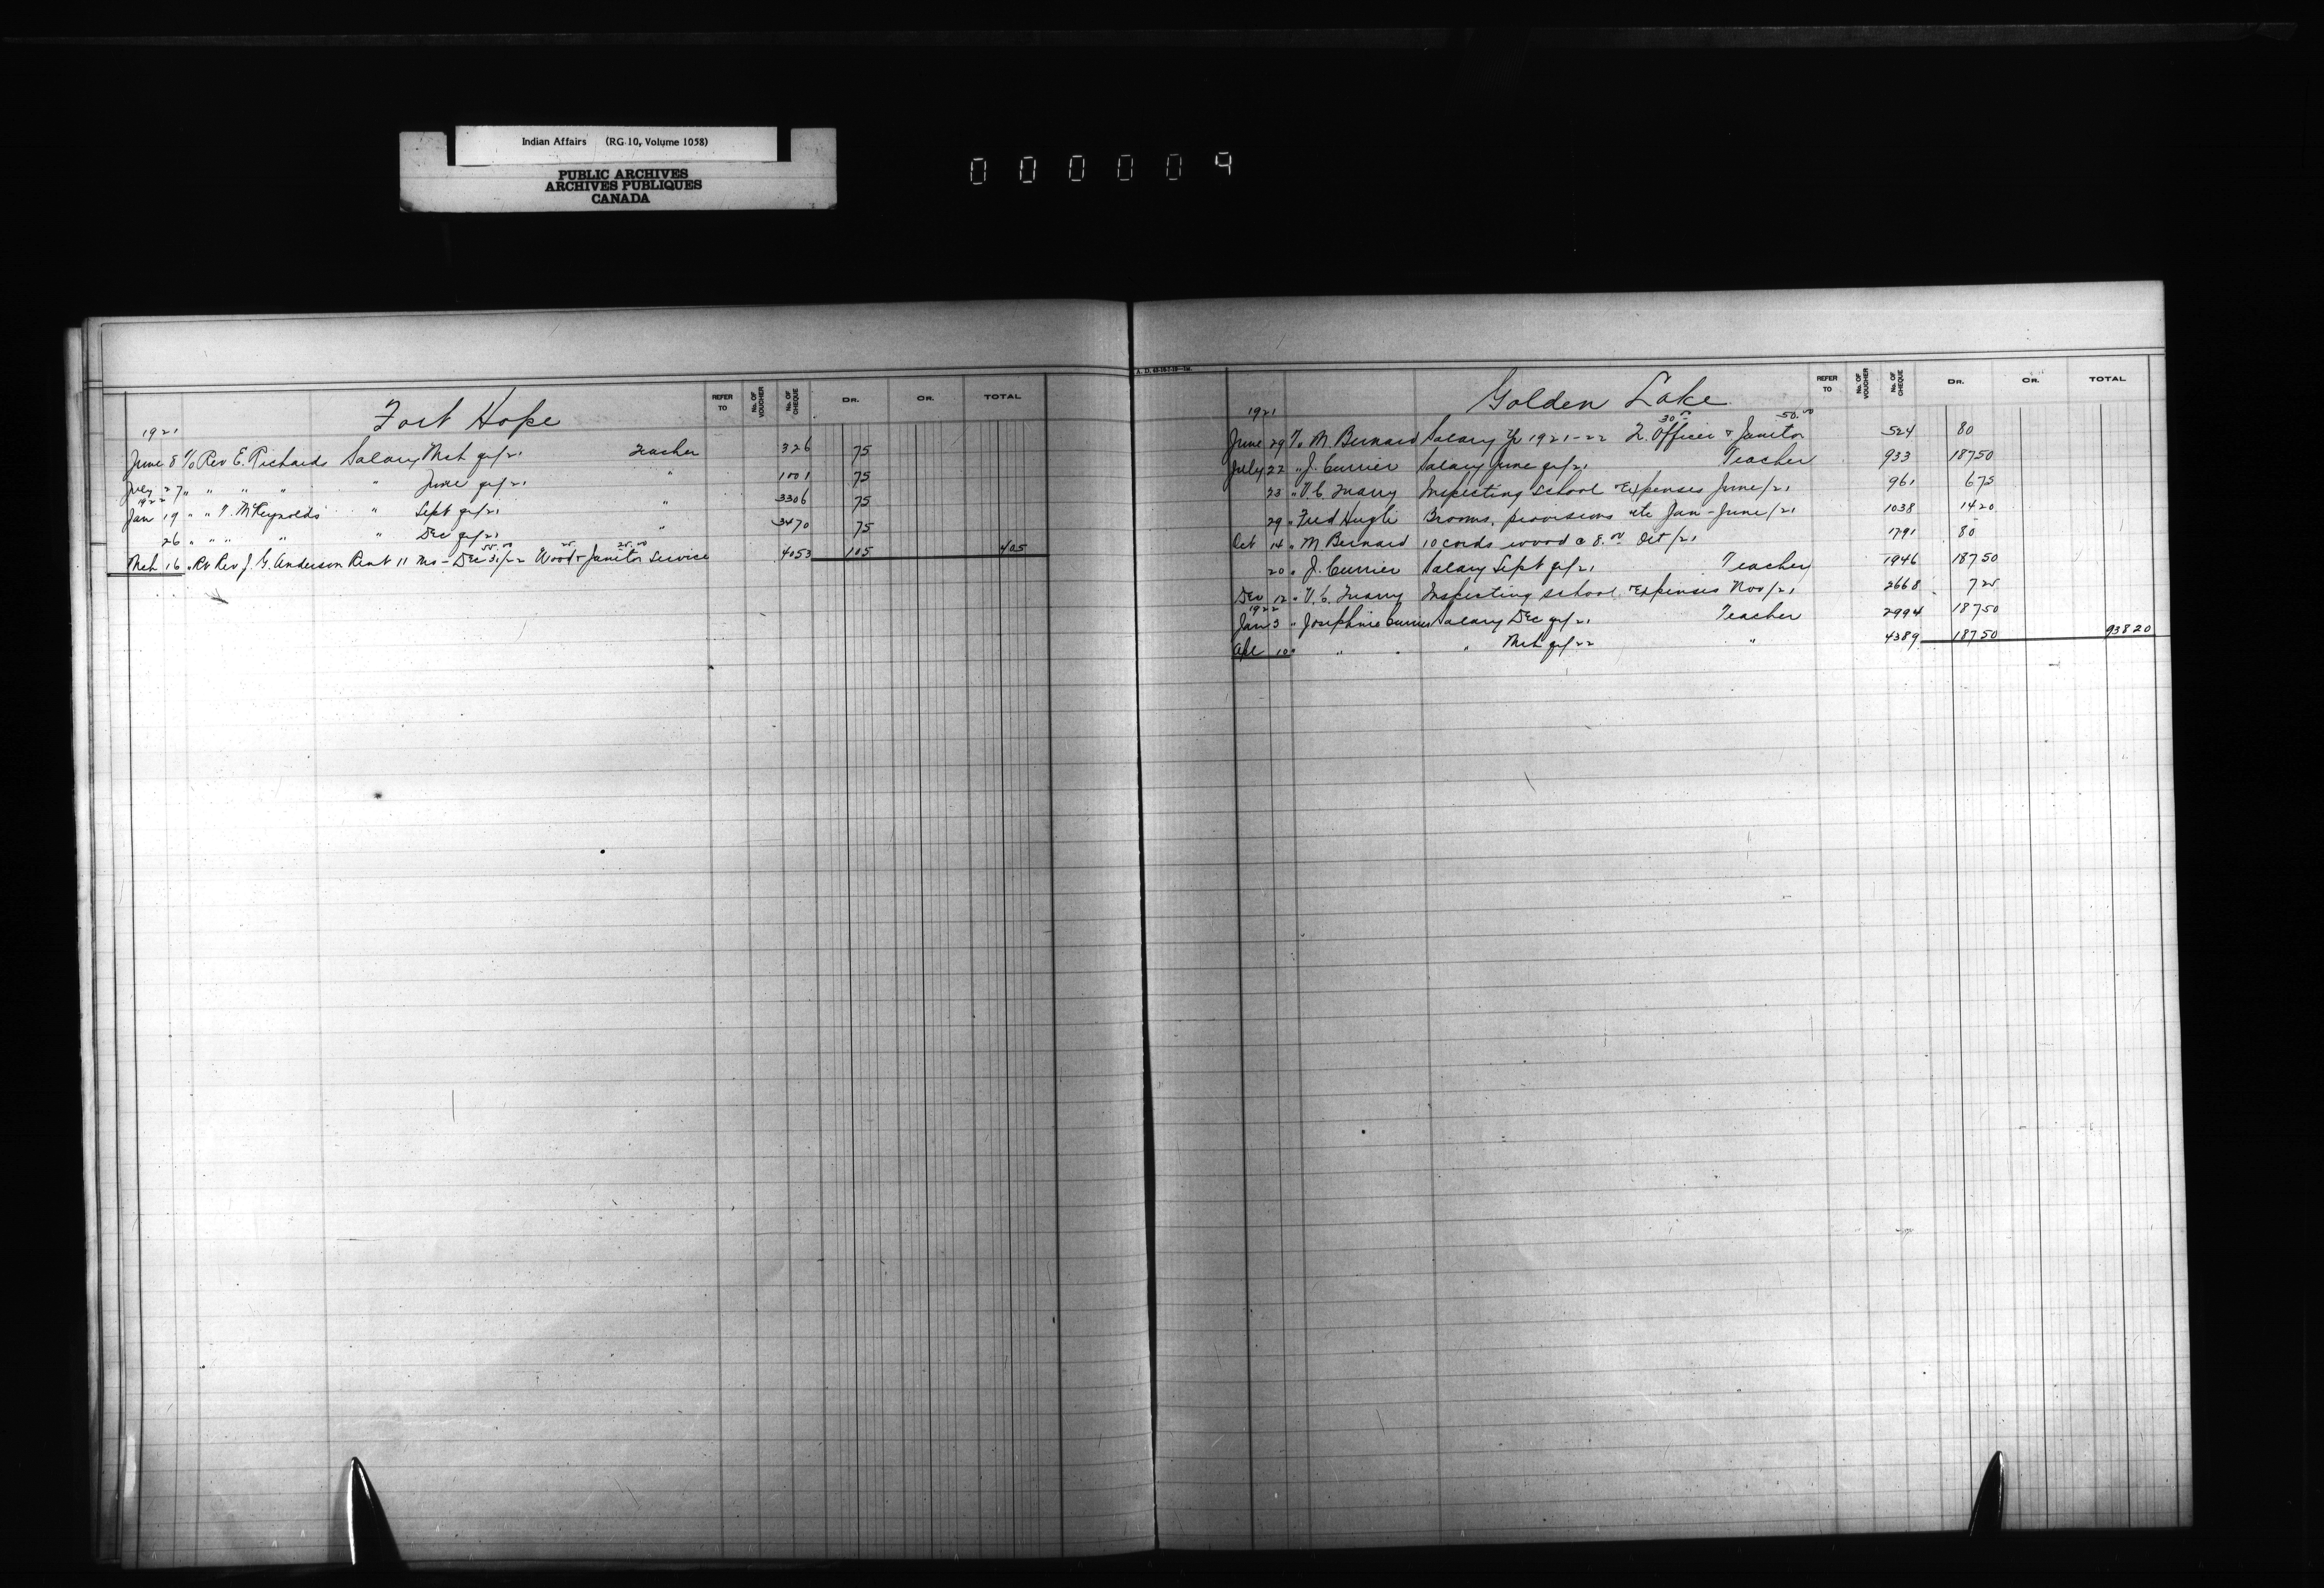 Indian Affairs (RG 10, Volume 1058)
PUBLIC ARCHIVES
ARCHIVES PUBLIQUES
CANADA
000009
REFER TO No. OF VOUCHER No. OF CHEQUE DR. CR. TOTAL
Fort Hope
1921
June 8 To Rev E. Richards Salary Mch qr/21 Teacher 326 75
July 27 " " " " " June qr/21 " 1001 75
1922
Jan 19 " " T. McReynolds " Sept qr/21 " 3306 75
26 " " " " " Dec qr/21 " 3470 75
55.00 25 25.00
Mch 16 " Rt Rev J. G. Anderson Rent 11 ms - Dec 31/22 Wood & Janitor Service 4053 105 405
REFER TO No. OF VOUCHER No. OF CHEQUE DR. CR. TOTAL
Golden Lake
1921 30.00 50.00
June 29 To M. Bernard Salary Yr 1921-22 T. Officer & Janitor 524 80
July 22 " J. Currier Salary June qr/21 Teacher 933 187 50
23 " V. C. Inspecting school Expenses June/21 961 6 75
29 " Fred Hugli Brooms, provisions etc Jan - June/21 1038 14 20
Oct 14 " M Bernard 10 cords wood @ 8.00 Oct/21 1791 80
20 " J. Currier Salary Sept qr/21 Teacher 1946 187 50
Dec 12 " V. C. Inspecting school Expenses Nov/21 2668 7 25
1922
Jan 3 " Josephine Currier Salary Dec qr/21 Teacher 2994 187 50
Apl 10 " " " " Mch qr/22 " 4389 187 50 938 20